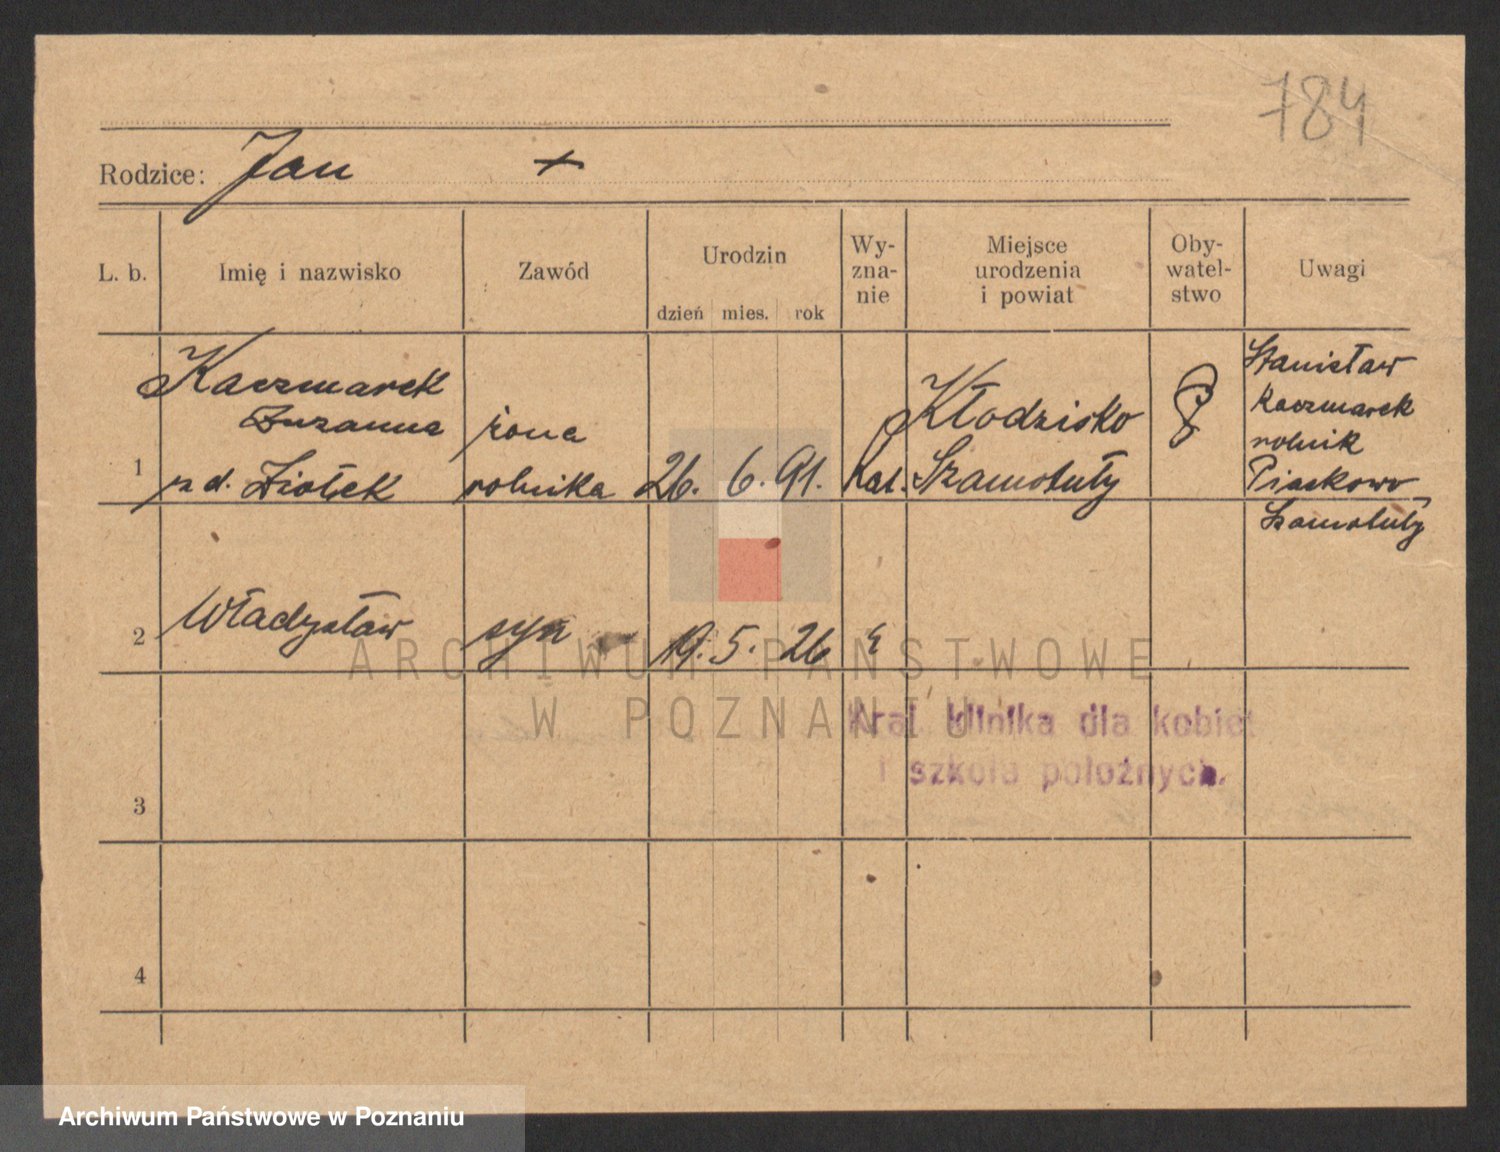 784
Rodzice: Jan +
L. b. Imię i nazwisko Zawód Urodzin dzień mies. rok Wy-zna-nie Miejsce urodzenia i powiat Oby-watel-stwo Uwagi
Kaczmarek
Zuzanna
1 z d. Ziołek
żona
rolnika
26. 6. 91.
Kat.
Kłodzisko
Szamotuły
P
Stanisław
Kaczmarek
rolnik
Piaskowo
Szamotuły
2 Władysław syn 19. 5. 26
ARCHIWUM PAŃSTWOWE
W POZNANIU
Kraj. klinika dla kobiet
i szkoła położnych.
3
4
Archiwum Państwowe w Poznaniu